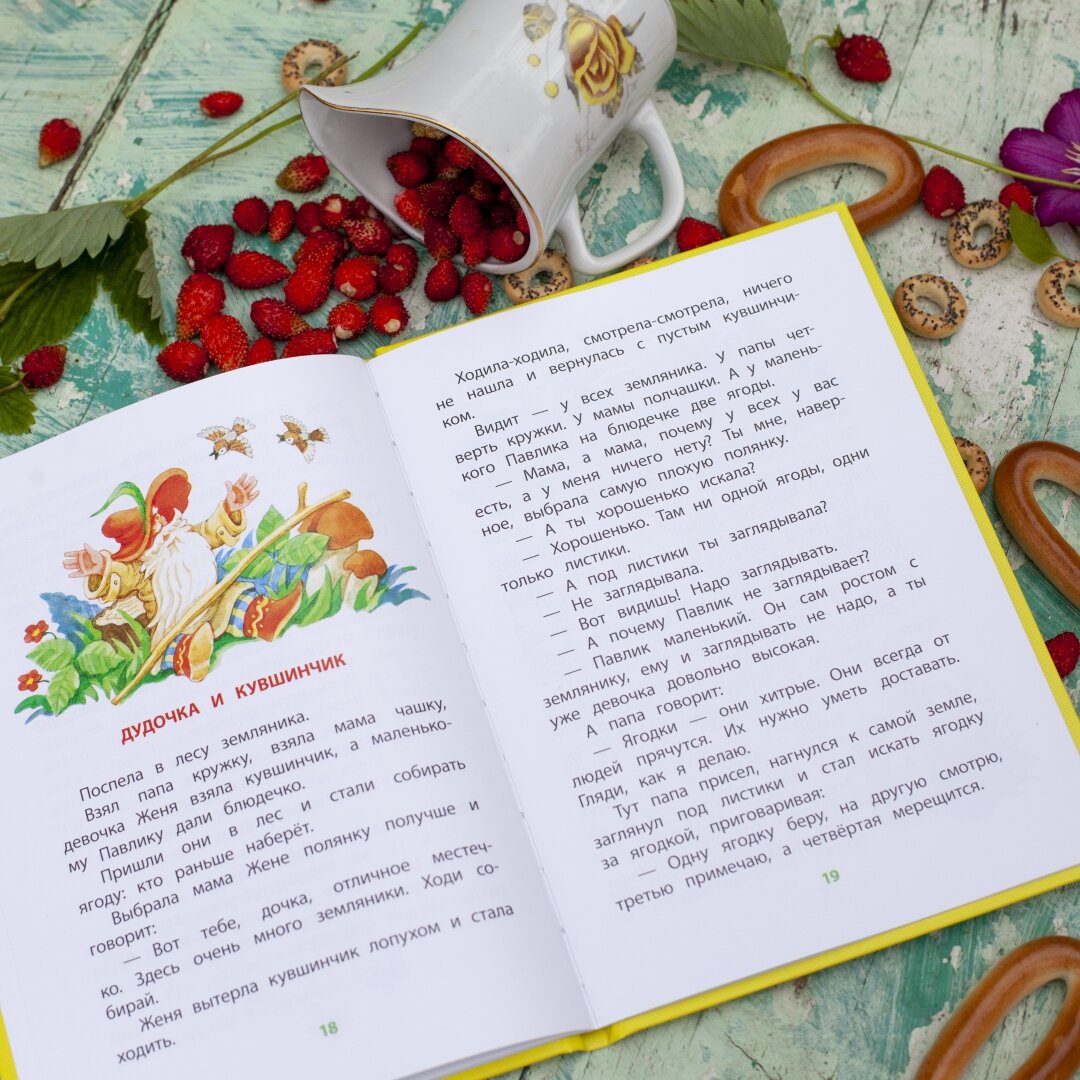 ДУДОЧКА И КУВШИНЧИК
Поспела в лесу земляника.
Взял папа кружку, взяла мама чашку,
девочка Женя взяла кувшинчик, а маленько-
му Павлику дали блюдечко.
Пришли они в лес и стали собирать
ягоду: кто раньше наберёт.
Выбрала мама Жене полянку получше и
говорит:
— Вот тебе, дочка, отличное местеч-
ко. Здесь очень много земляники. Ходи со-
бирай.
Женя вытерла кувшинчик лопухом и стала
ходить.
18
Ходила-ходила, смотрела-смотрела, ничего
не нашла и вернулась с пустым кувшинчи-
ком.
Видит — у всех земляника. У папы чет-
верть кружки. У мамы полчашки. А у малень-
кого Павлика на блюдечке две ягоды.
— Мама, а мама, почему у всех у вас
есть, а у меня ничего нету? Ты мне, навер-
ное, выбрала самую плохую полянку.
— А ты хорошенько искала?
— Хорошенько. Там ни одной ягоды, одни
только листики.
— А под листики ты заглядывала?
— Не заглядывала.
— Вот видишь! Надо заглядывать.
— А почему Павлик не заглядывает?
— Павлик маленький. Он сам ростом с
землянику, ему и заглядывать не надо, а ты
уже девочка довольно высокая.
А папа говорит:
— Ягодки — они хитрые. Они всегда от
людей прячутся. Их нужно уметь доставать.
Гляди, как я делаю.
Тут папа присел, нагнулся к самой земле,
заглянул под листики и стал искать ягодку
за ягодкой, приговаривая:
— Одну ягодку беру, на другую смотрю,
третью примечаю, а четвёртая мерещится.
19